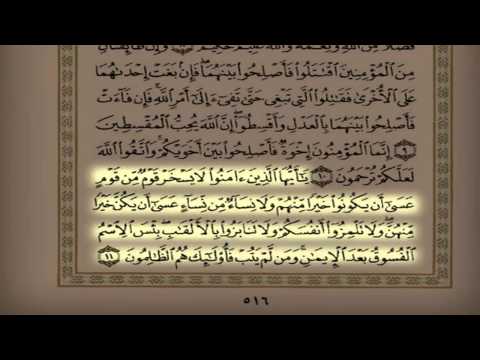 فَضْلًا مِّنَ ٱللَّهِ وَنِعْمَةً وَٱللَّهُ عَلِيمٌ حَكِيمٌ ٨ وَإِن طَآئِفَتَانِ
مِنَ ٱلْمُؤْمِنِينَ ٱقْتَتَلُوا۟ فَأَصْلِحُوا۟ بَيْنَهُمَا فَإِنۢ بَغَتْ إِحْدَىٰهُمَا
عَلَى ٱلْأُخْرَىٰ فَقَٰتِلُوا۟ ٱلَّتِى تَبْغِى حَتَّىٰ تَفِىٓءَ إِلَىٰٓ أَمْرِ ٱللَّهِ فَإِن فَآءَتْ
فَأَصْلِحُوا۟ بَيْنَهُمَا بِٱلْعَدْلِ وَأَقْسِطُوٓا۟ إِنَّ ٱللَّهَ يُحِبُّ ٱلْمُقْسِطِينَ
٩ إِنَّمَا ٱلْمُؤْمِنُونَ إِخْوَةٌ فَأَصْلِحُوا۟ بَيْنَ أَخَوَيْكُمْ وَٱتَّقُوا۟ ٱللَّهَ
لَعَلَّكُمْ تُرْحَمُونَ ١٠ يَٰٓأَيُّهَا ٱلَّذِينَ ءَامَنُوا۟ لَا يَسْخَرْ قَوْمٌ مِّن قَوْمٍ
عَسَىٰٓ أَن يَكُونُوا۟ خَيْرًا مِّنْهُمْ وَلَا نِسَآءٌ مِّن نِّسَآءٍ عَسَىٰٓ أَن يَكُنَّ خَيْرًا
مِّنْهُنَّ وَلَا تَلْمِزُوٓا۟ أَنفُسَكُمْ وَلَا تَنَابَزُوا۟ بِٱلْأَلْقَٰبِ بِئْسَ ٱلِٱسْمُ
ٱلْفُسُوقُ بَعْدَ ٱلْإِيمَٰنِ وَمَن لَّمْ يَتُبْ فَأُو۟لَٰٓئِكَ هُمُ ٱلظَّٰلِمُونَ ١١
٥١٦